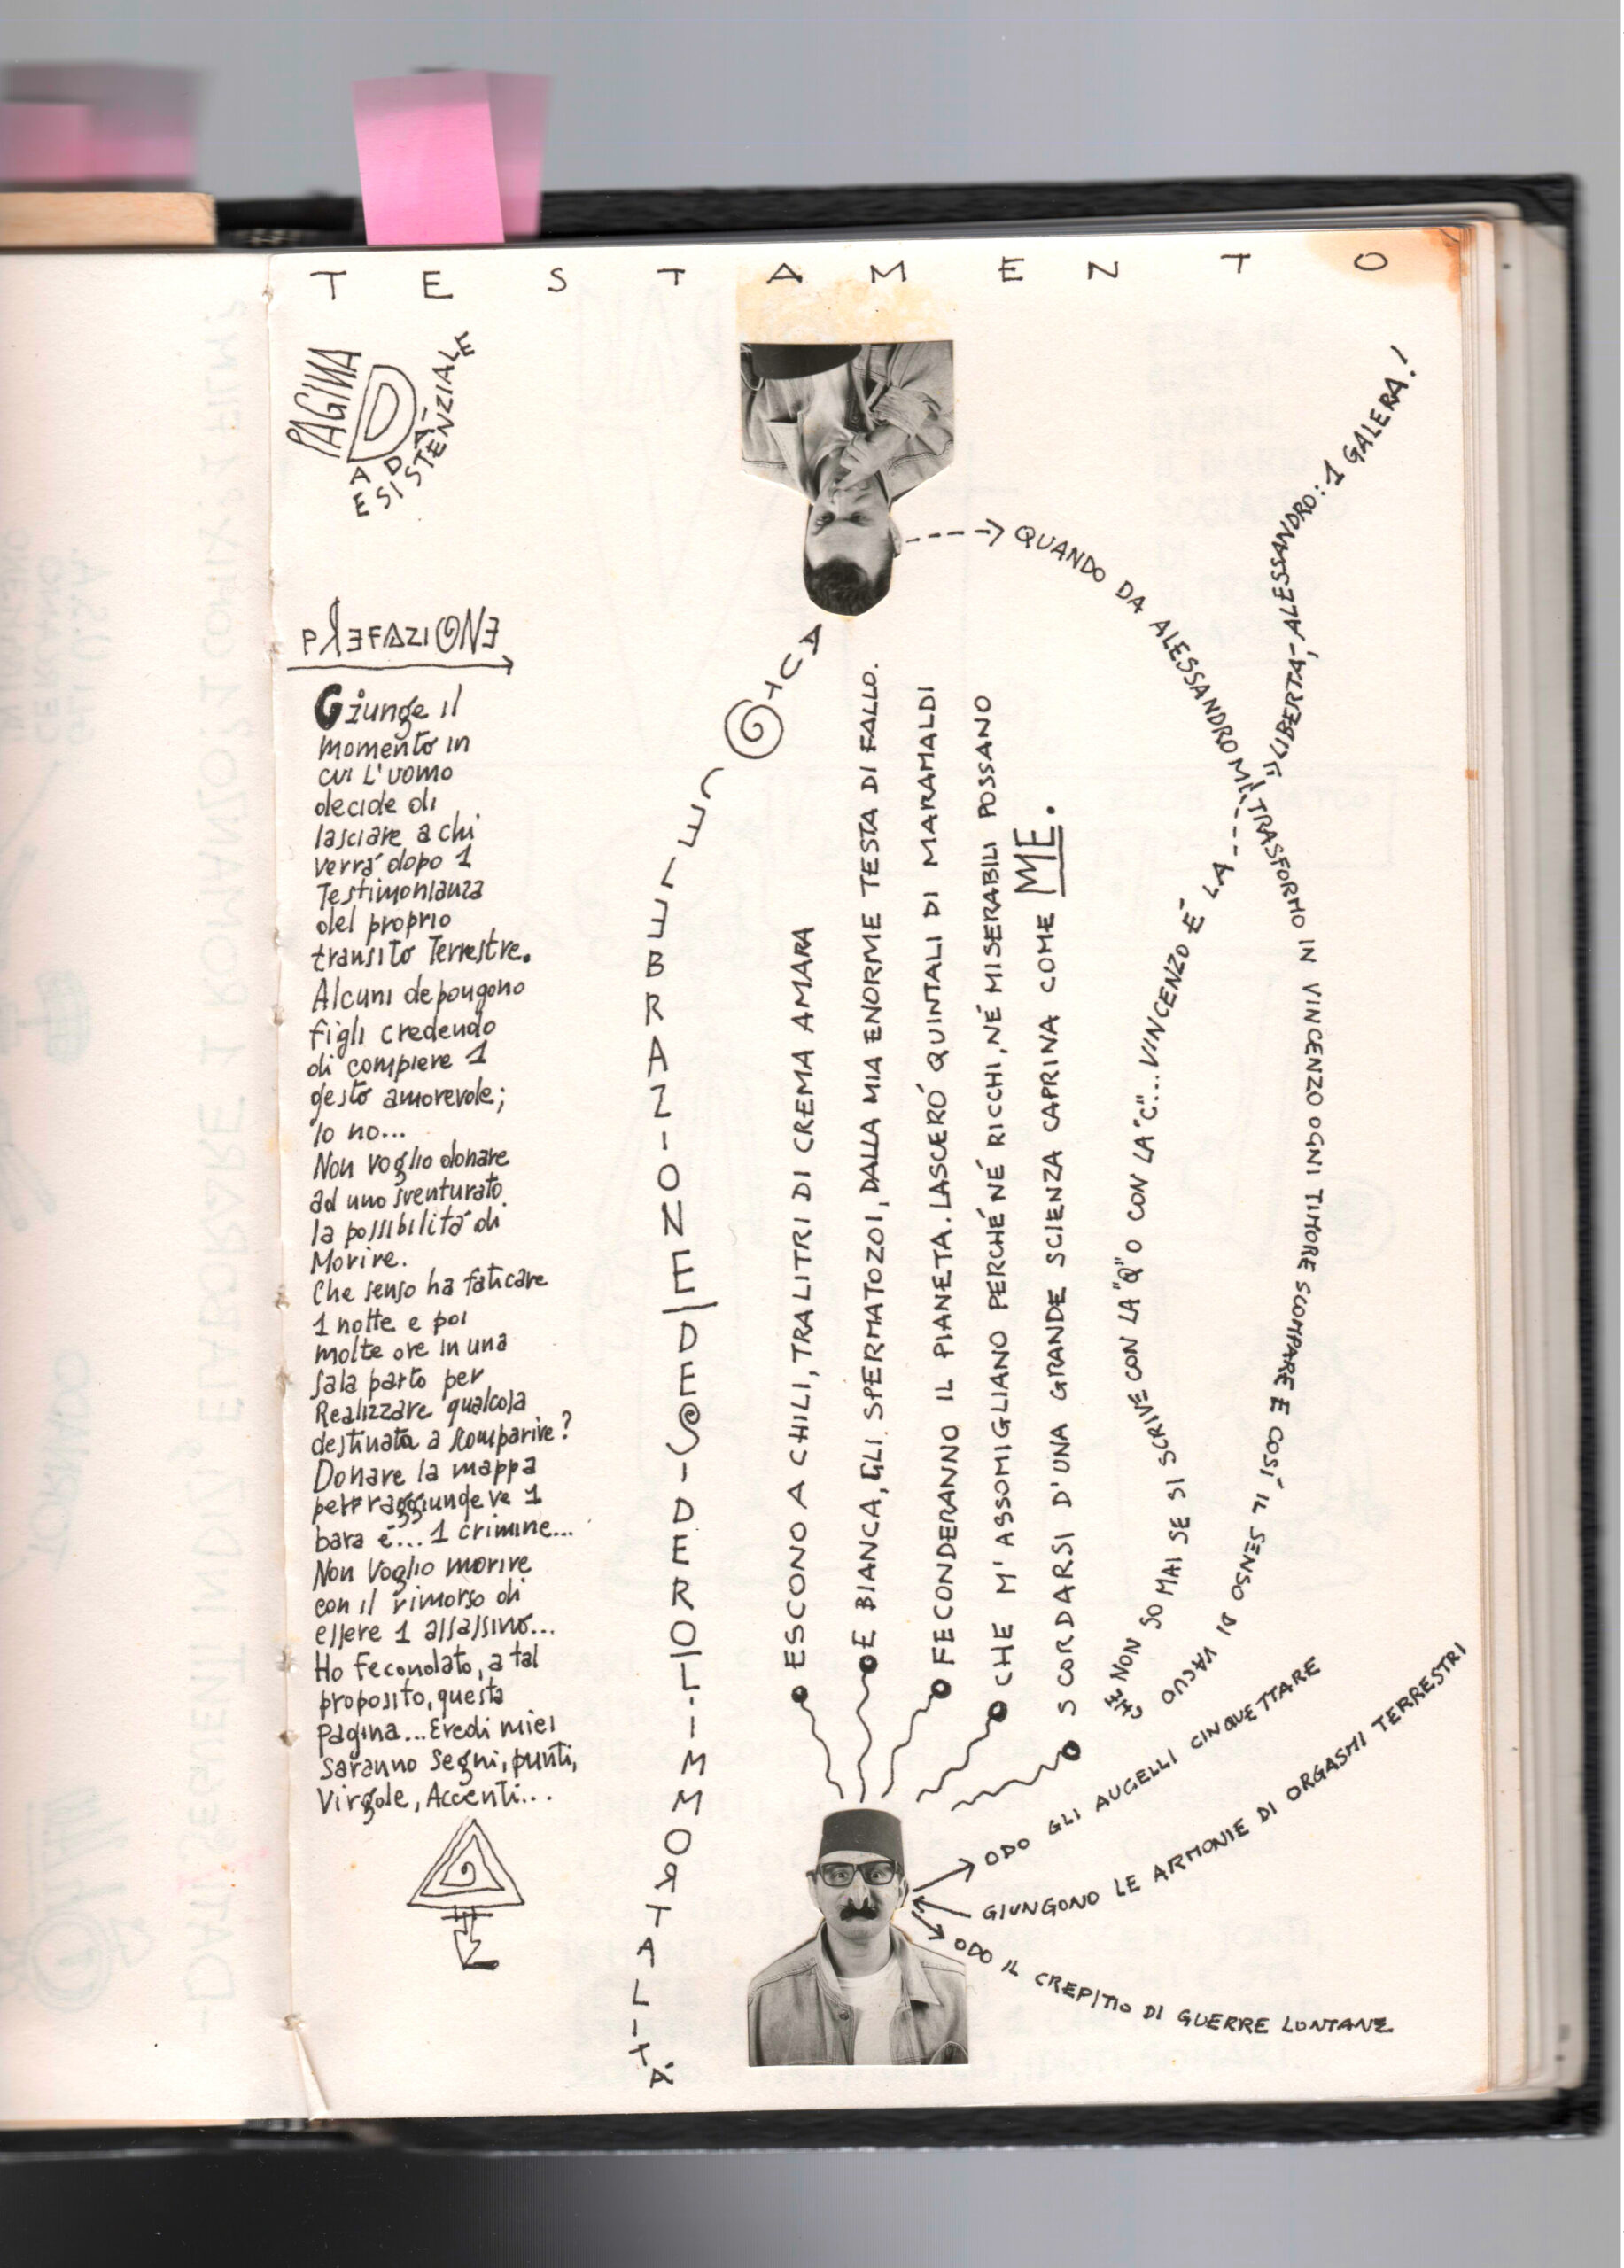 TESTAMENTO
PAGINA
DADA-
ESISTENZIALE
PREFAZIONE
Giunge il
momento in
cui l'uomo
decide di
lasciare a chi
verrá dopo 1
Testimonianza
del proprio
transito Terrestre.
Alcuni depongono
figli credendo
di compiere 1
gesto amorevole;
Io no...
Non voglio donare
ad uno sventurato
la possibilitá di
Morire.
Che senso ha faticare
1 notte e poi
molte ore in una
sala parto per
Realizzare qualcosa
destinata a scomparire?
Donare la mappa
per raggiungere 1
bara é... 1 crimine...
Non Voglio morire
con il rimorso di
essere 1 assassino...
Ho fecondato, a tal
proposito, questa
pagina... Eredi miei
saranno segni, punti,
Virgole, Accenti...
AUTOCELEBRAZIONE | DESIDERO | IMMORTALITÁ
ESCONO A CHILI, TRA LITRI DI CREMA AMARA
E BIANCA, GLI SPERMATOZOI, DALLA MIA ENORME TESTA DI FALLO.
FECONDERANNO IL PIANETA. LASCERÓ QUINTALI DI MARAMALDI
CHE M'ASSOMIGLIANO PERCHÉ NÉ RICCHI, NÉ MISERABILI POSSANO
SCORDARSI D'UNA GRANDE SCIENZA CAPRINA COME ME.
QUANDO DA ALESSANDRO MI TRASFORMO IN VINCENZO OGNI TIMORE SCOMPARE E COSÍ IL SENSO DI VACUO
CHE NON SO MAI SE SI SCRIVE CON LA "Q" O CON LA "C"... VINCENZO É LA
LIBERTÁ, ALESSANDRO: 1 GALERA!
ODO GLI AUGELLI CINQUETTARE
GIUNGONO LE ARMONIE DI ORGASMI TERRESTRI
ODO IL CREPITIO DI GUERRE LONTANE